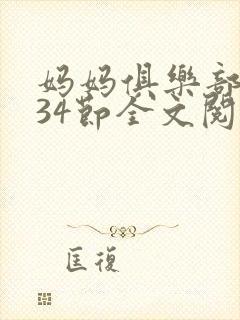 妈妈俱樂部
34節全文閱
匡復